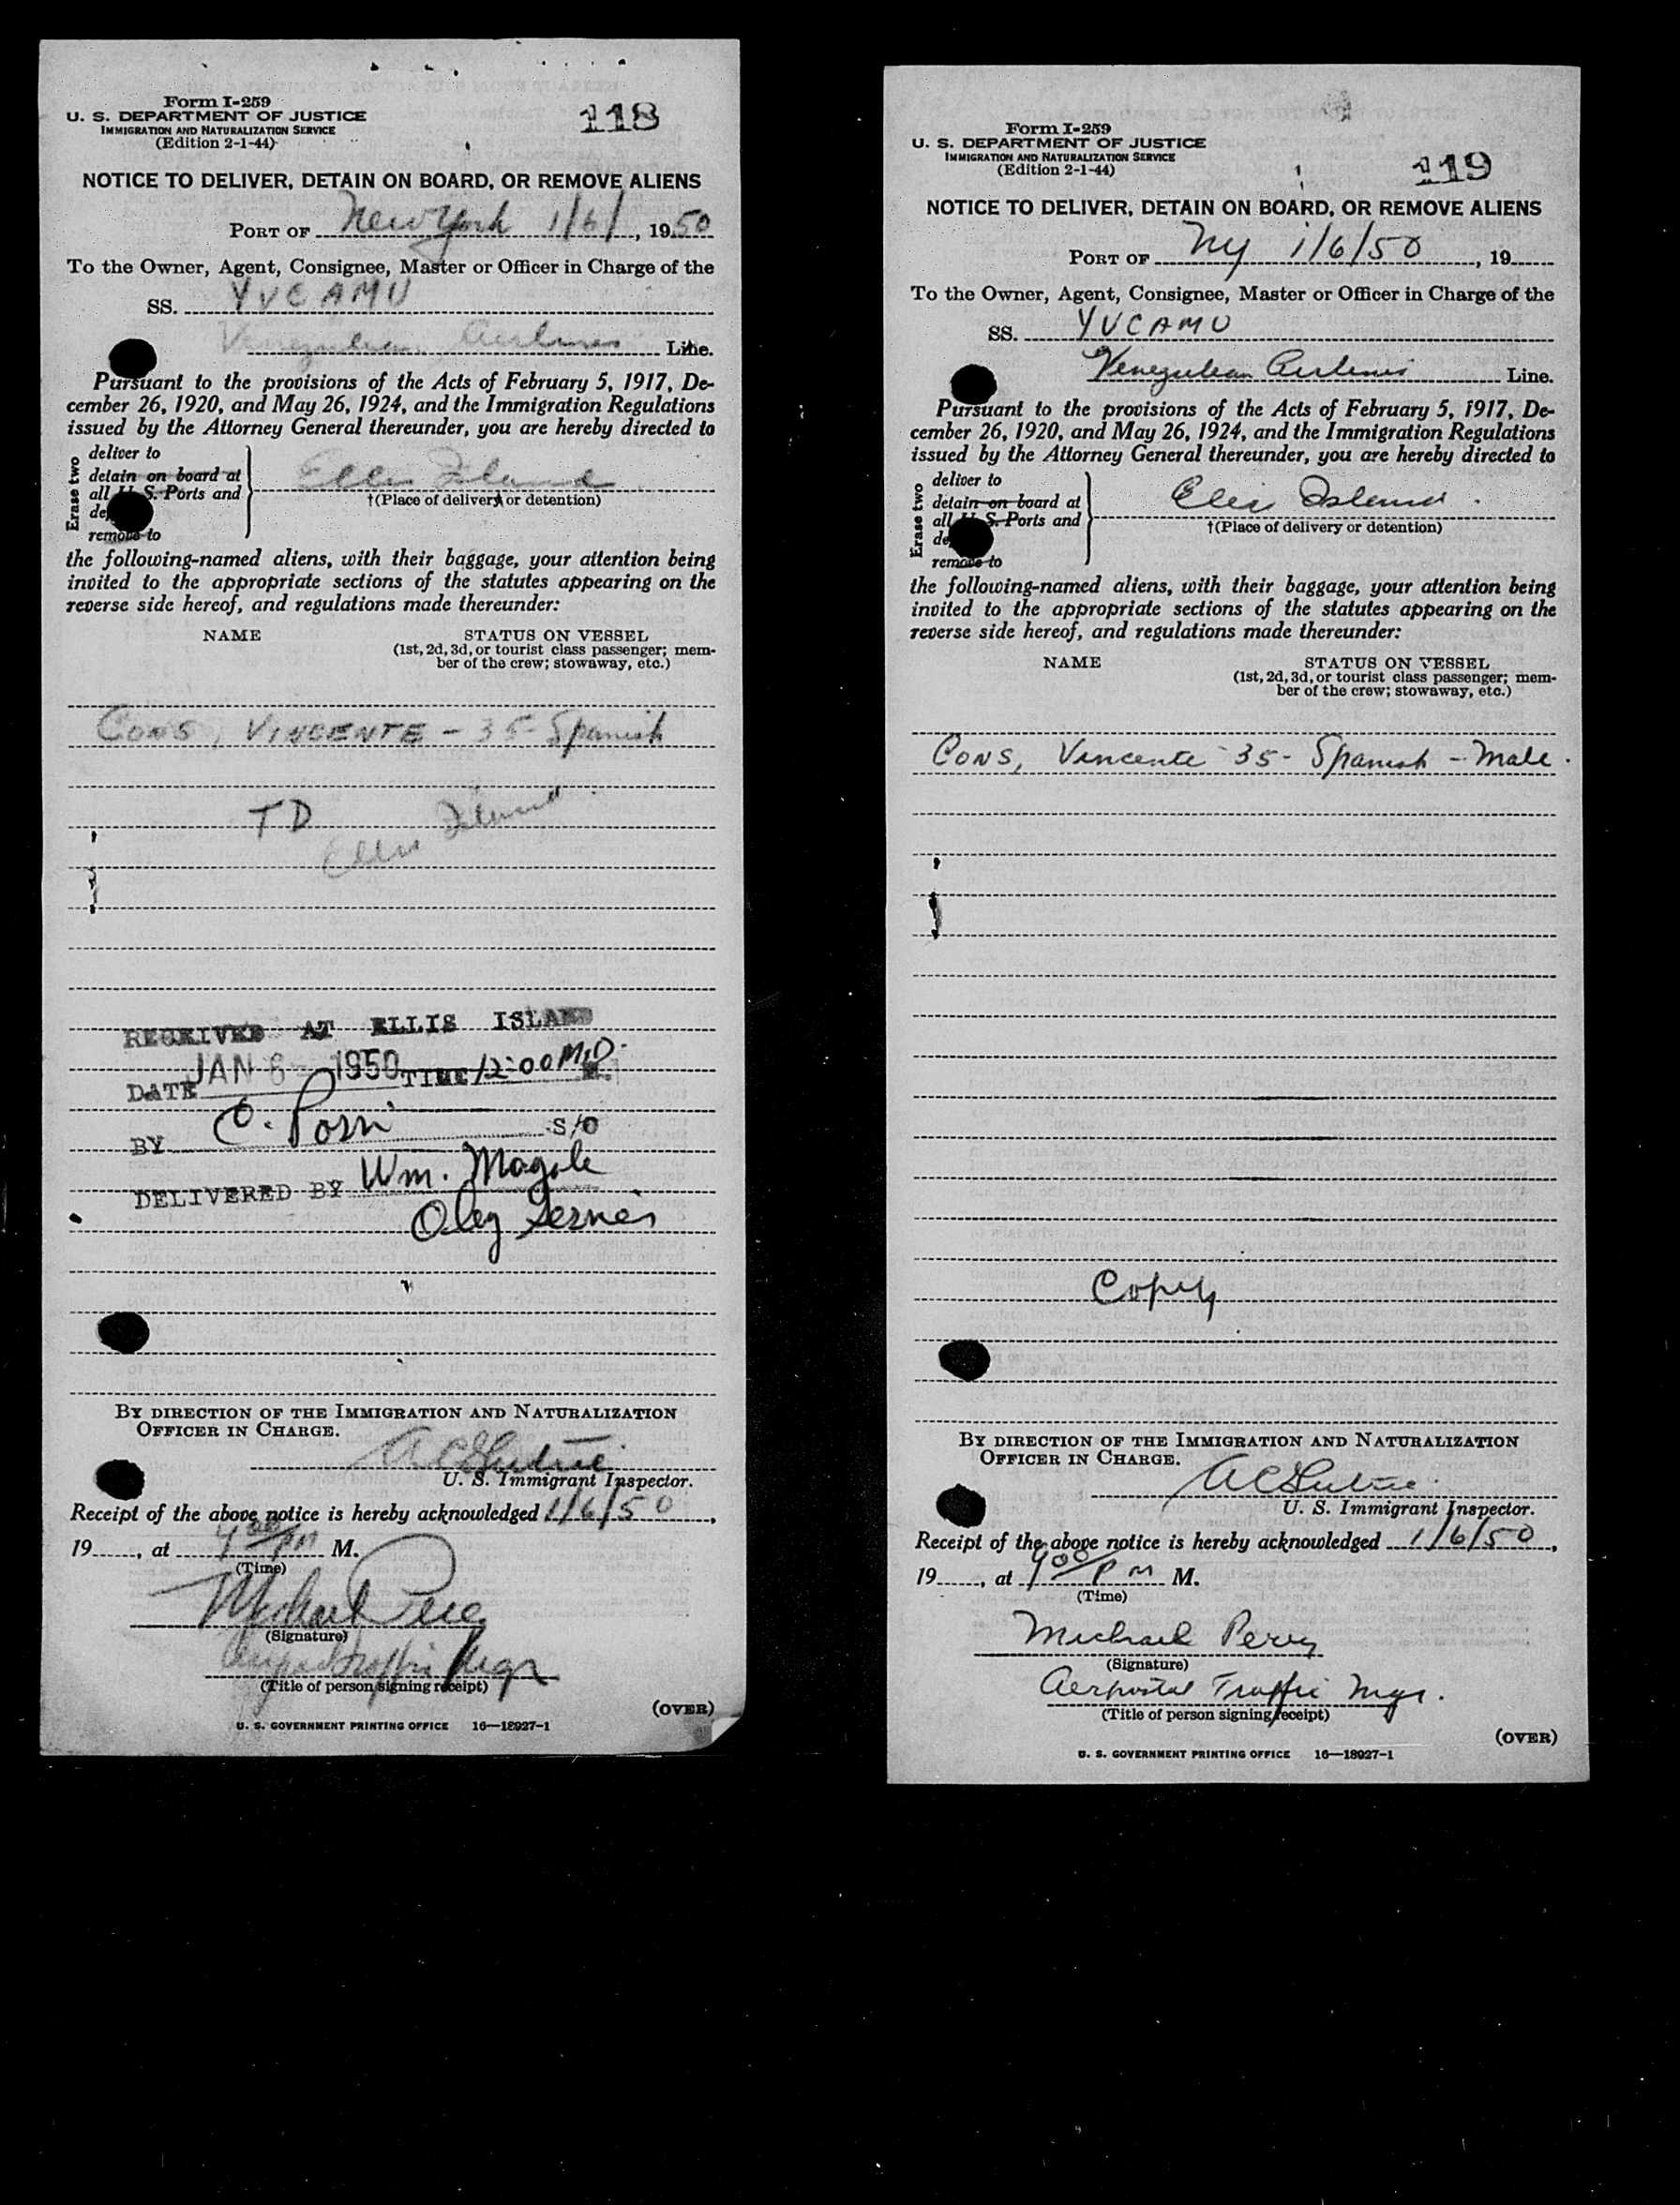 Form I-259
U. S. DEPARTMENT OF JUSTICE
IMMIGRATION AND NATURALIZATION SERVICE
(Edition 2-1-44)
118
NOTICE TO DELIVER, DETAIN ON BOARD, OR REMOVE ALIENS
PORT OF New York 1/6/, 1950
To the Owner, Agent, Consignee, Master or Officer in Charge of the
SS. YVCAMU
Venezulean Airlines Line.
Pursuant to the provisions of the Acts of February 5, 1917, De-
cember 26, 1920, and May 26, 1924, and the Immigration Regulations
issued by the Attorney General thereunder, you are hereby directed to
Erase two
deliver to
detain on board at
all U. S. Ports and
de
remove to
Ellis Island
†(Place of delivery or detention)
the following-named aliens, with their baggage, your attention being
invited to the appropriate sections of the statutes appearing on the
reverse side hereof, and regulations made thereunder:
NAME STATUS ON VESSEL
(1st, 2d, 3d, or tourist class passenger; mem-
ber of the crew; stowaway, etc.)
CONS, VINCENTE - 35 - Spanish
TD Ellis Island
RECEIVED AT ELLIS ISLAND
DATE JAN 6 - 1950 TIME 12:00 M.D. M.
BY C. S/O
DELIVERED BY Wm.
Oleg
BY DIRECTION OF THE IMMIGRATION AND NATURALIZATION
OFFICER IN CHARGE.
U. S. Immigrant Inspector.
Receipt of the above notice is hereby acknowledged 1/6/50,
19, at 900 PM M.
(Time)
Michael
(Signature)
Mgr
(Title of person signing receipt)
(OVER)
U. S. GOVERNMENT PRINTING OFFICE 16—18927-1
Form I-259
U. S. DEPARTMENT OF JUSTICE
IMMIGRATION AND NATURALIZATION SERVICE
(Edition 2-1-44)
119
NOTICE TO DELIVER, DETAIN ON BOARD, OR REMOVE ALIENS
PORT OF NY 1/6/50, 19
To the Owner, Agent, Consignee, Master or Officer in Charge of the
SS. YVCAMU
Venezulean Airlines Line.
Pursuant to the provisions of the Acts of February 5, 1917, De-
cember 26, 1920, and May 26, 1924, and the Immigration Regulations
issued by the Attorney General thereunder, you are hereby directed to
Erase two
deliver to
detain on board at
all U. S. Ports and
de
remove to
Ellis Island.
†(Place of delivery or detention)
the following-named aliens, with their baggage, your attention being
invited to the appropriate sections of the statutes appearing on the
reverse side hereof, and regulations made thereunder:
NAME STATUS ON VESSEL
(1st, 2d, 3d, or tourist class passenger; mem-
ber of the crew; stowaway, etc.)
CONS, Vincente 35 - Spanish - Male.
Copy
BY DIRECTION OF THE IMMIGRATION AND NATURALIZATION
OFFICER IN CHARGE.
U. S. Immigrant Inspector.
Receipt of the above notice is hereby acknowledged 1/6/50,
19, at 900 PM M.
(Time)
Michael Perry
(Signature)
Aerpostal Traffic Mgr.
(Title of person signing receipt)
(OVER)
U. S. GOVERNMENT PRINTING OFFICE 16—18927-1